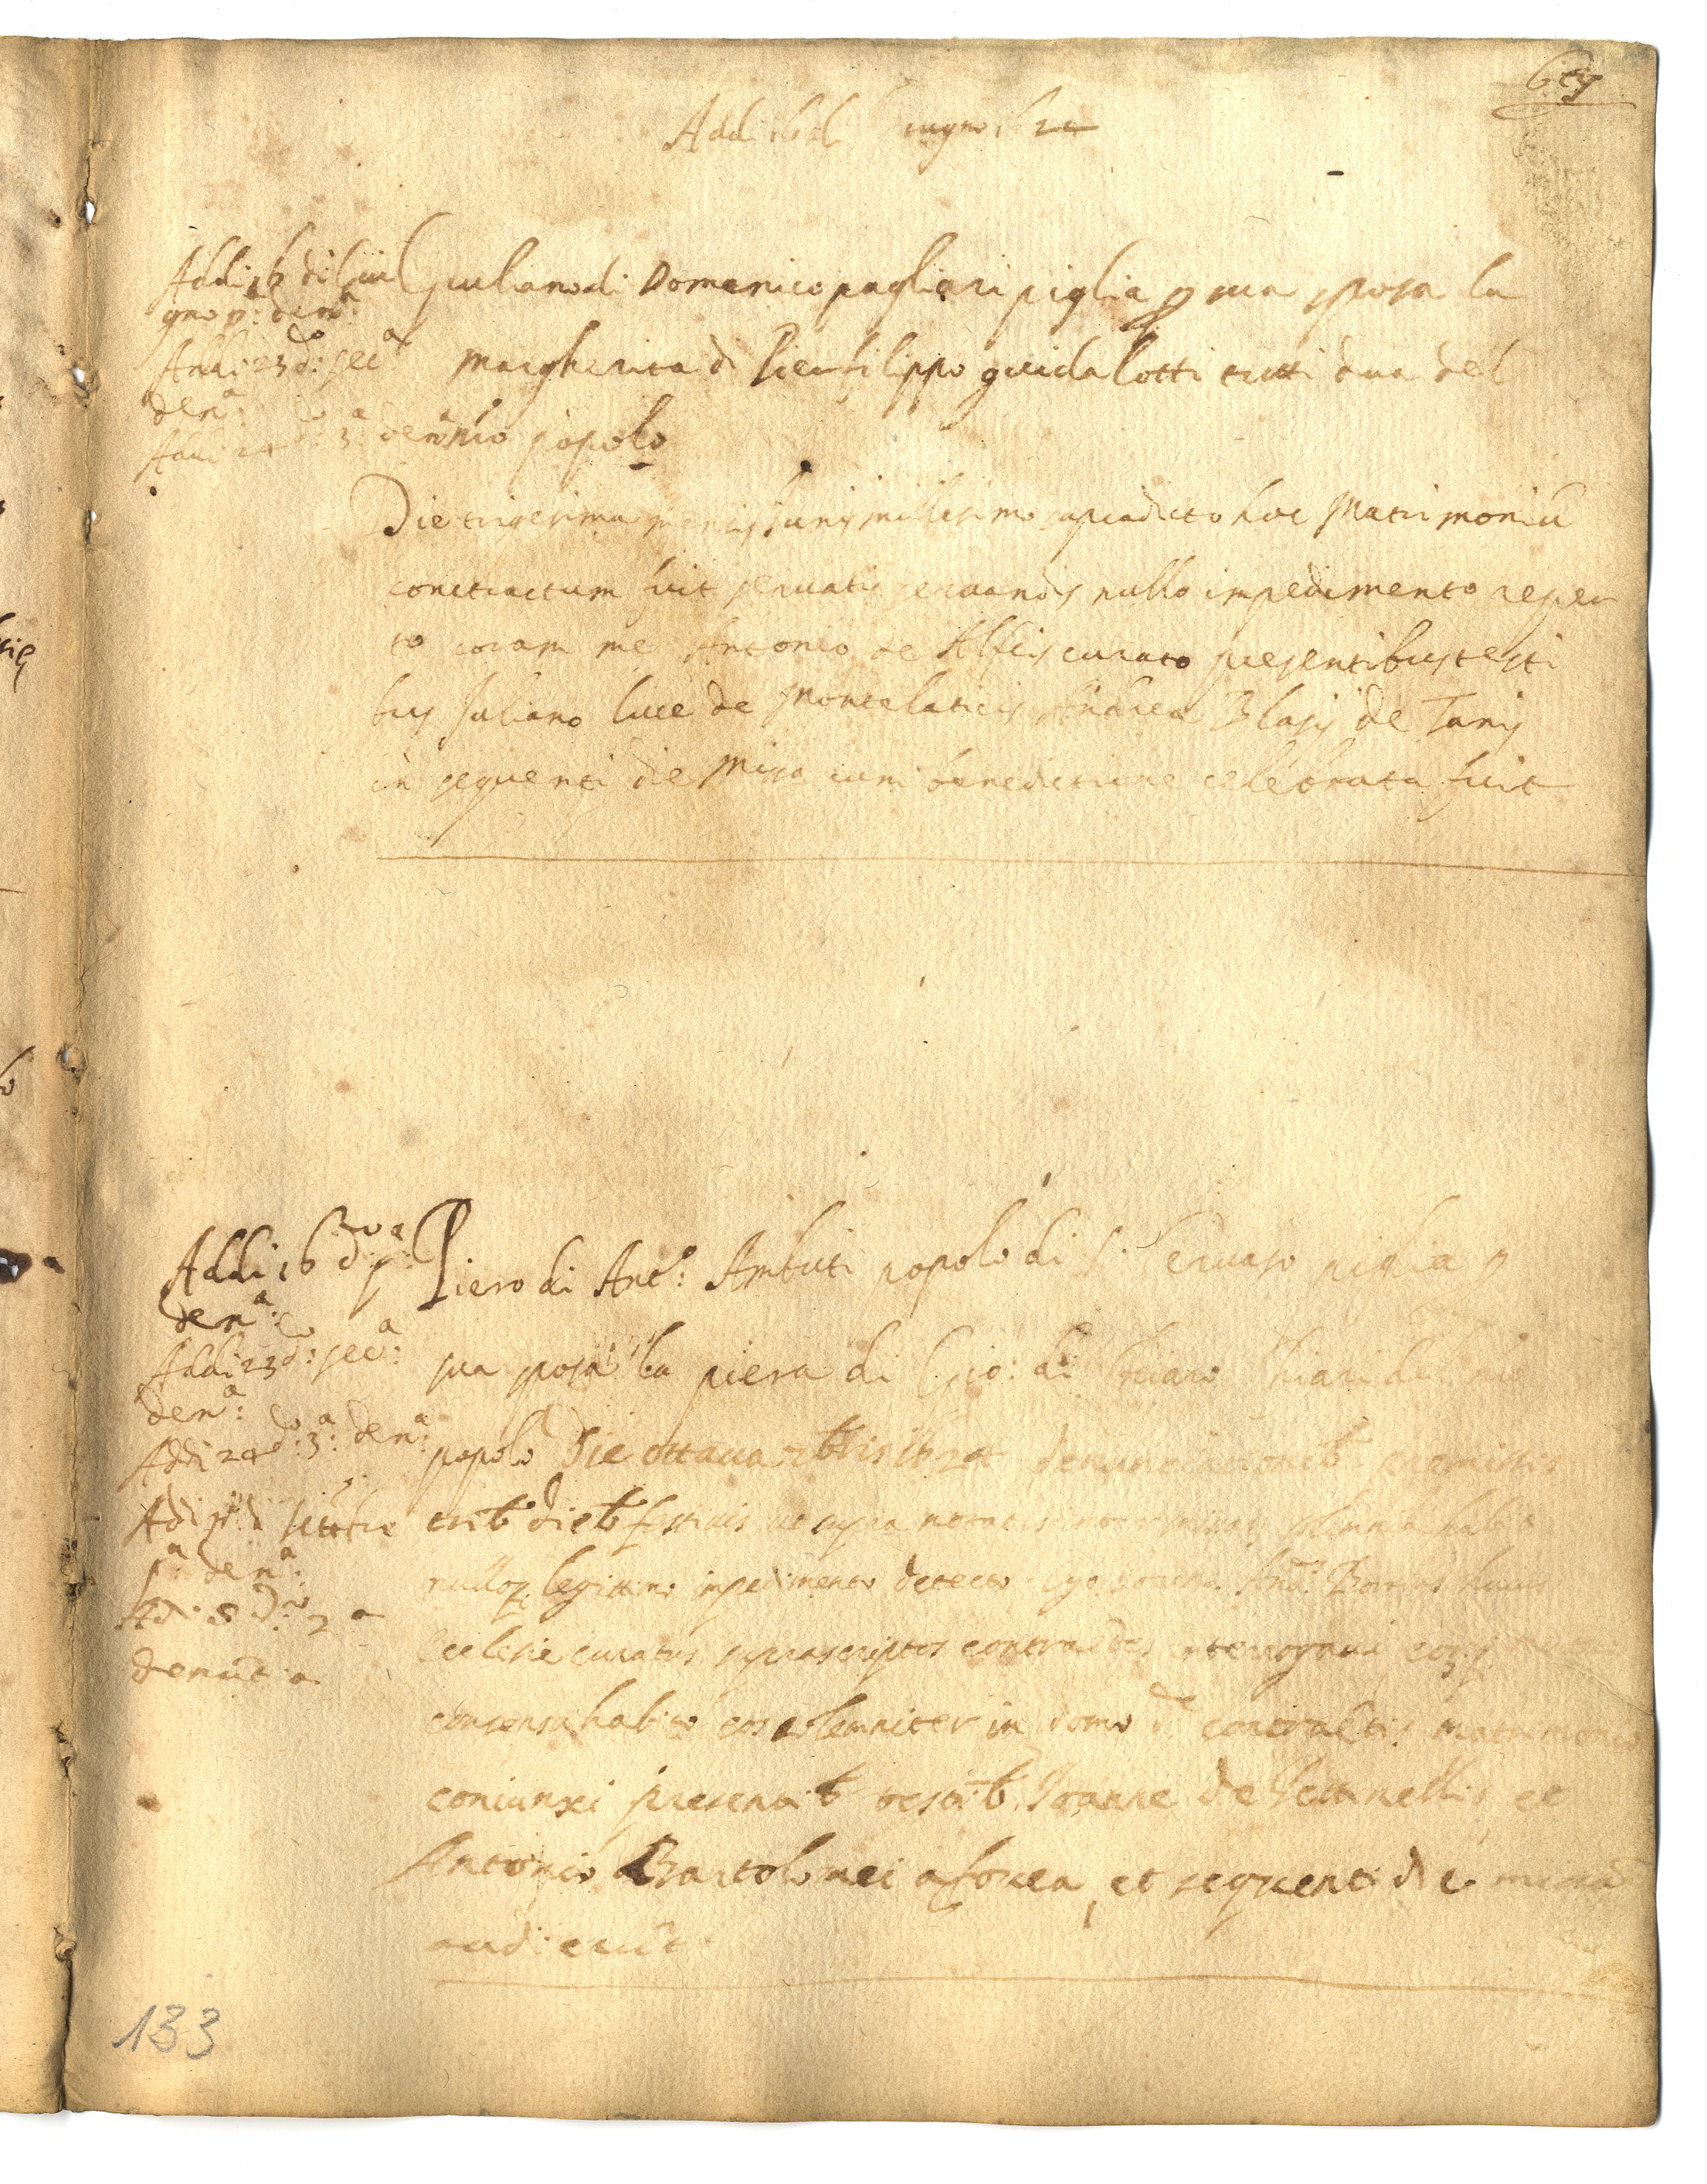 69
Addi 16 di iugno
Addi 16 di Giu
gno pª: denª:
Addi 23 dº: secª
denª:
Addi 24 dº: 3ª: denª
Giuliano di Domenico pagliari piglia p sua sposa la
Margherita di Pierfilippo guidalotti tutti dua del
mio popolo
Die trigesima mensis Junij millesimo supradicto hoc Matrimoniũ
contractum fuit servatis servandis nullo impedimento reper
to coram me Antonio de Alfeis curato presentibus testi
bus Juliano luce de Montelaticis Andrea Blasij de Tanis
in sequenti die Missa cum benedictione celebrata fuit
Addi 16 dº pª:
denª:
Addi 23 dº: secª:
denª:
Addi 24 dº: 3ª: denª:
Adi pº di settẽbre
pª: denª:
Adi 8 dº 2ª
denũtia
Piero di Antº: Ambuti popolo di S. Cervaso piglia p
sua sposa la piera di Gio: di Chiari del mio
popolo Die ottava 7bris 1624 denunciationibˢ premissis
tribˢ diebˢ festivis ut supra solemnia
nulloq; legittimo impedimento detecto Ego huius
Ecclesie curatus suprascriptos contraĩtes interrogavi eoq;
consensu habito eos solemniter in domo dº matrimonio
coniunxi presentibˢ testibˢ Joanne de Pettinellis et
Antonio Bartolomei a force, et sequenti die missã
audierũt
133